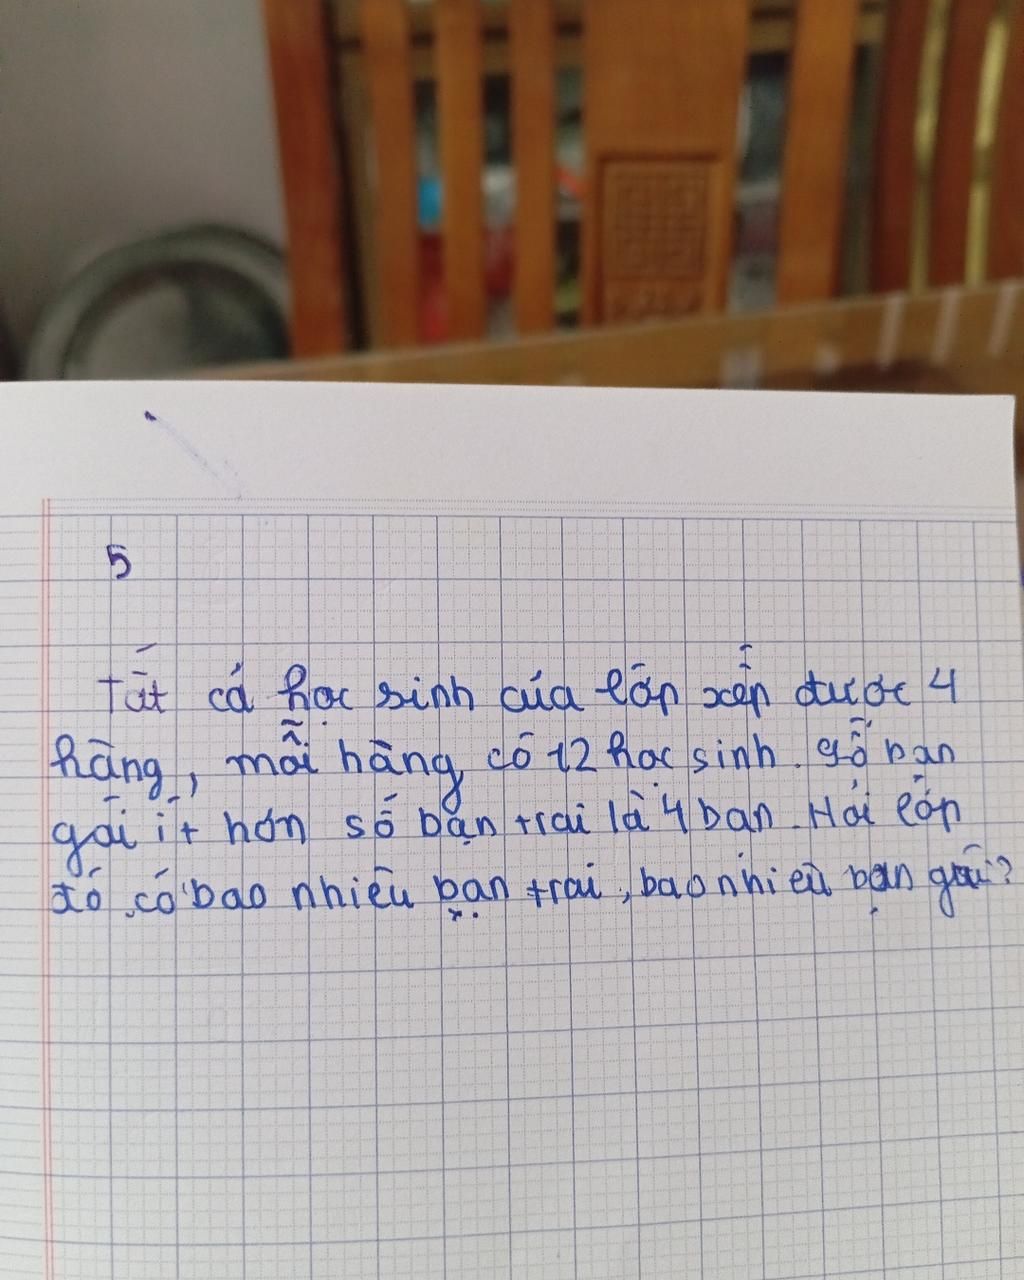 5
Tất cả học sinh của lớp xếp được 4
hàng, mỗi hàng có 12 học sinh. Số bạn
gái ít hơn số bạn trai là 4 bạn. Hỏi lớp
đó có bao nhiêu bạn trai, bao nhiêu bạn gái?